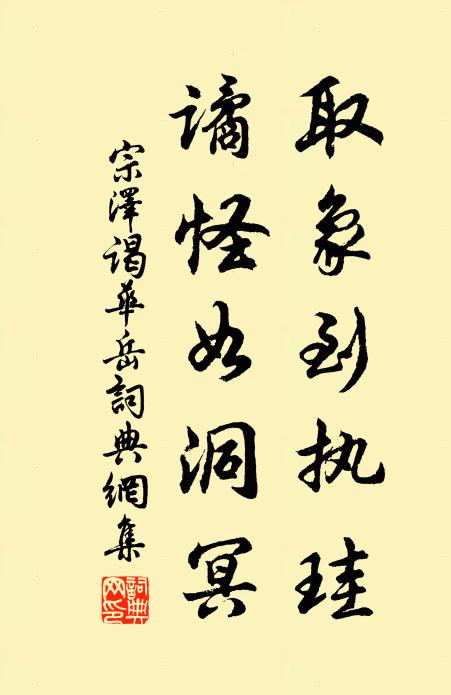 取象到执珪
谲怪如洞冥
宗澤謁華岳詞典網集
詞典网印